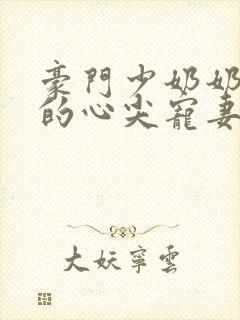 豪門少奶奶
的心尖寵妻
大妖寧雲